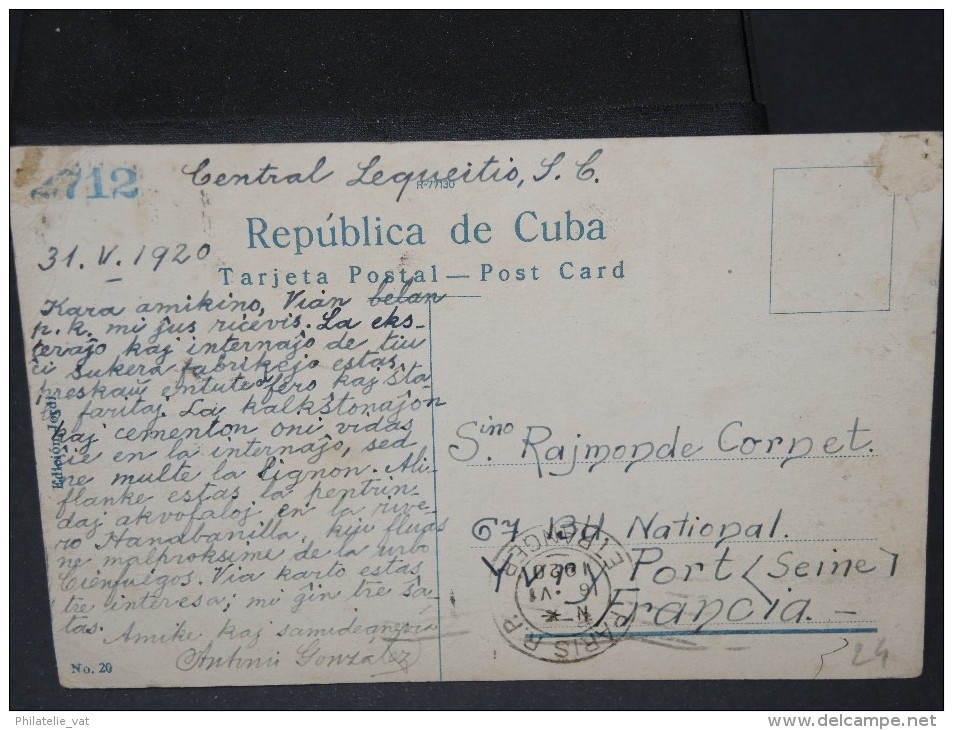 2712
Central Lequeitio, S. C.
R-77130
República de Cuba
Tarjeta Postal — Post Card
31. V. 1920
Kara amikino, Vian belan
p.k. mi ĵus ricevis. La eks-
teraĵo kaj internaĵo de tiu
ĉi sukera fabrikejo estas
preskaŭ entute el fero kaj ŝta-
lo faritaj. La kalkŝtonaĵon
kaj cementon oni vidas
ĉie en la internaĵo, sed
ne multe la lignon. Ali-
flanke estas la pentrin-
daj akvofaloj en la rive-
ro Hanabanilla, kiu fluas
ne malproksime de la urbo
Cienfuegos. Via karto estas
tre interesa; mi ĝin tre ŝa-
tas.
Amike kaj samideane via
Antonio Gonzalez
Edición Jordi
No. 20
Sino Rajmonde Cornet.
67 Bd National
Port (Seine)
Francia.-
PARIS R.P.
ETRANGER
16 VI
1920
24
Philatelie_vat
www.delcampe.net